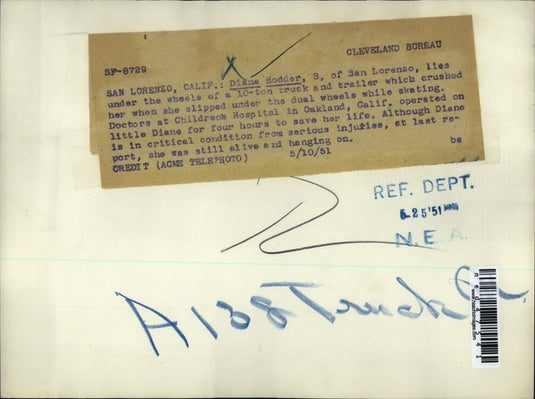 CLEVELAND BUREAU
SF-8729
SAN LORENZO, CALIF.: Diane Dodder, 3, of San Lorenzo, lies
under the wheels of a 10-ton truck and trailer which crushed
her when she slipped under the dual wheels while skating.
Doctors at Children's Hospital in Oakland, Calif. operated on
little Diane for four hours to save her life. Although Diane
is in critical condition from serious injuries, at last re-
port, she was still alive and hanging on.
CREDIT (ACME TELEPHOTO) 5/10/51 bs
REF. DEPT.
5 25 '51
N.E.A.
A138 Truck